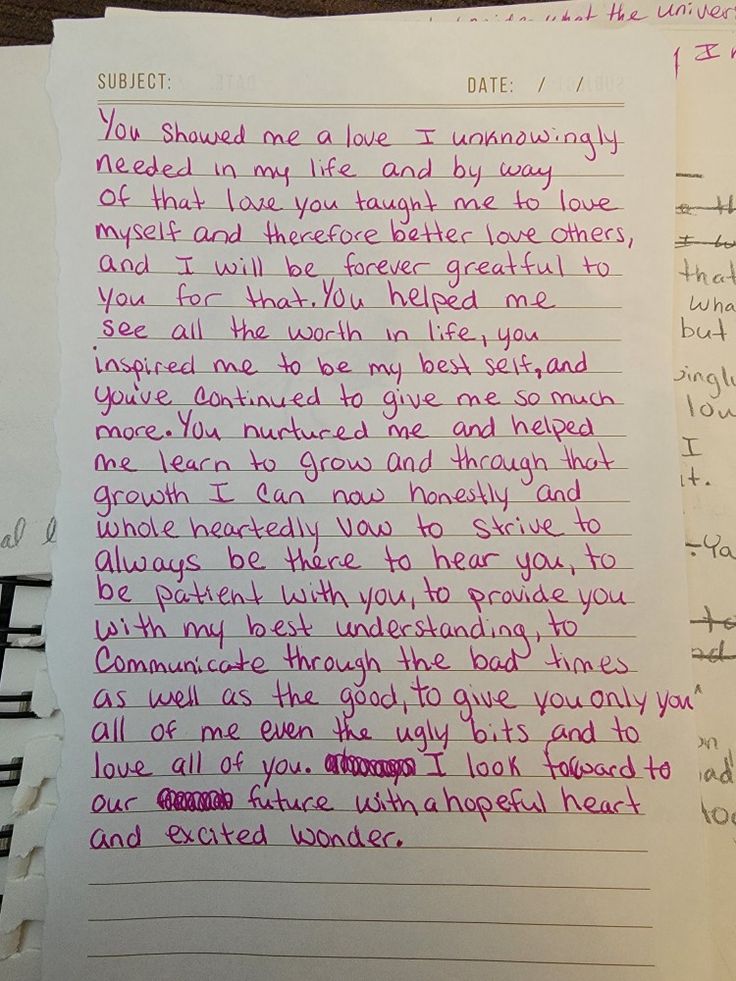 what the univer
I
SUBJECT:
DATE: / /
You showed me a love I unknowingly
needed in my life and by way
of that love you taught me to love
myself and therefore better love others,
and I will be forever greatful to
you for that. You helped me
see all the worth in life, you
inspired me to be my best self, and
you've continued to give me so much
more. You nurtured me and helped
me learn to grow and through that
growth I can now honestly and
whole heartedly vow to strive to
always be there to hear you, to
be patient with you, to provide you
with my best understanding, to
Communicate through the bad times
as well as the good, to give you only you^
all of me even the ugly bits and to
love all of you. I look forward to
our future with a hopeful heart
and excited wonder.
that
wha
but
ingly
lou
I
it.
al l